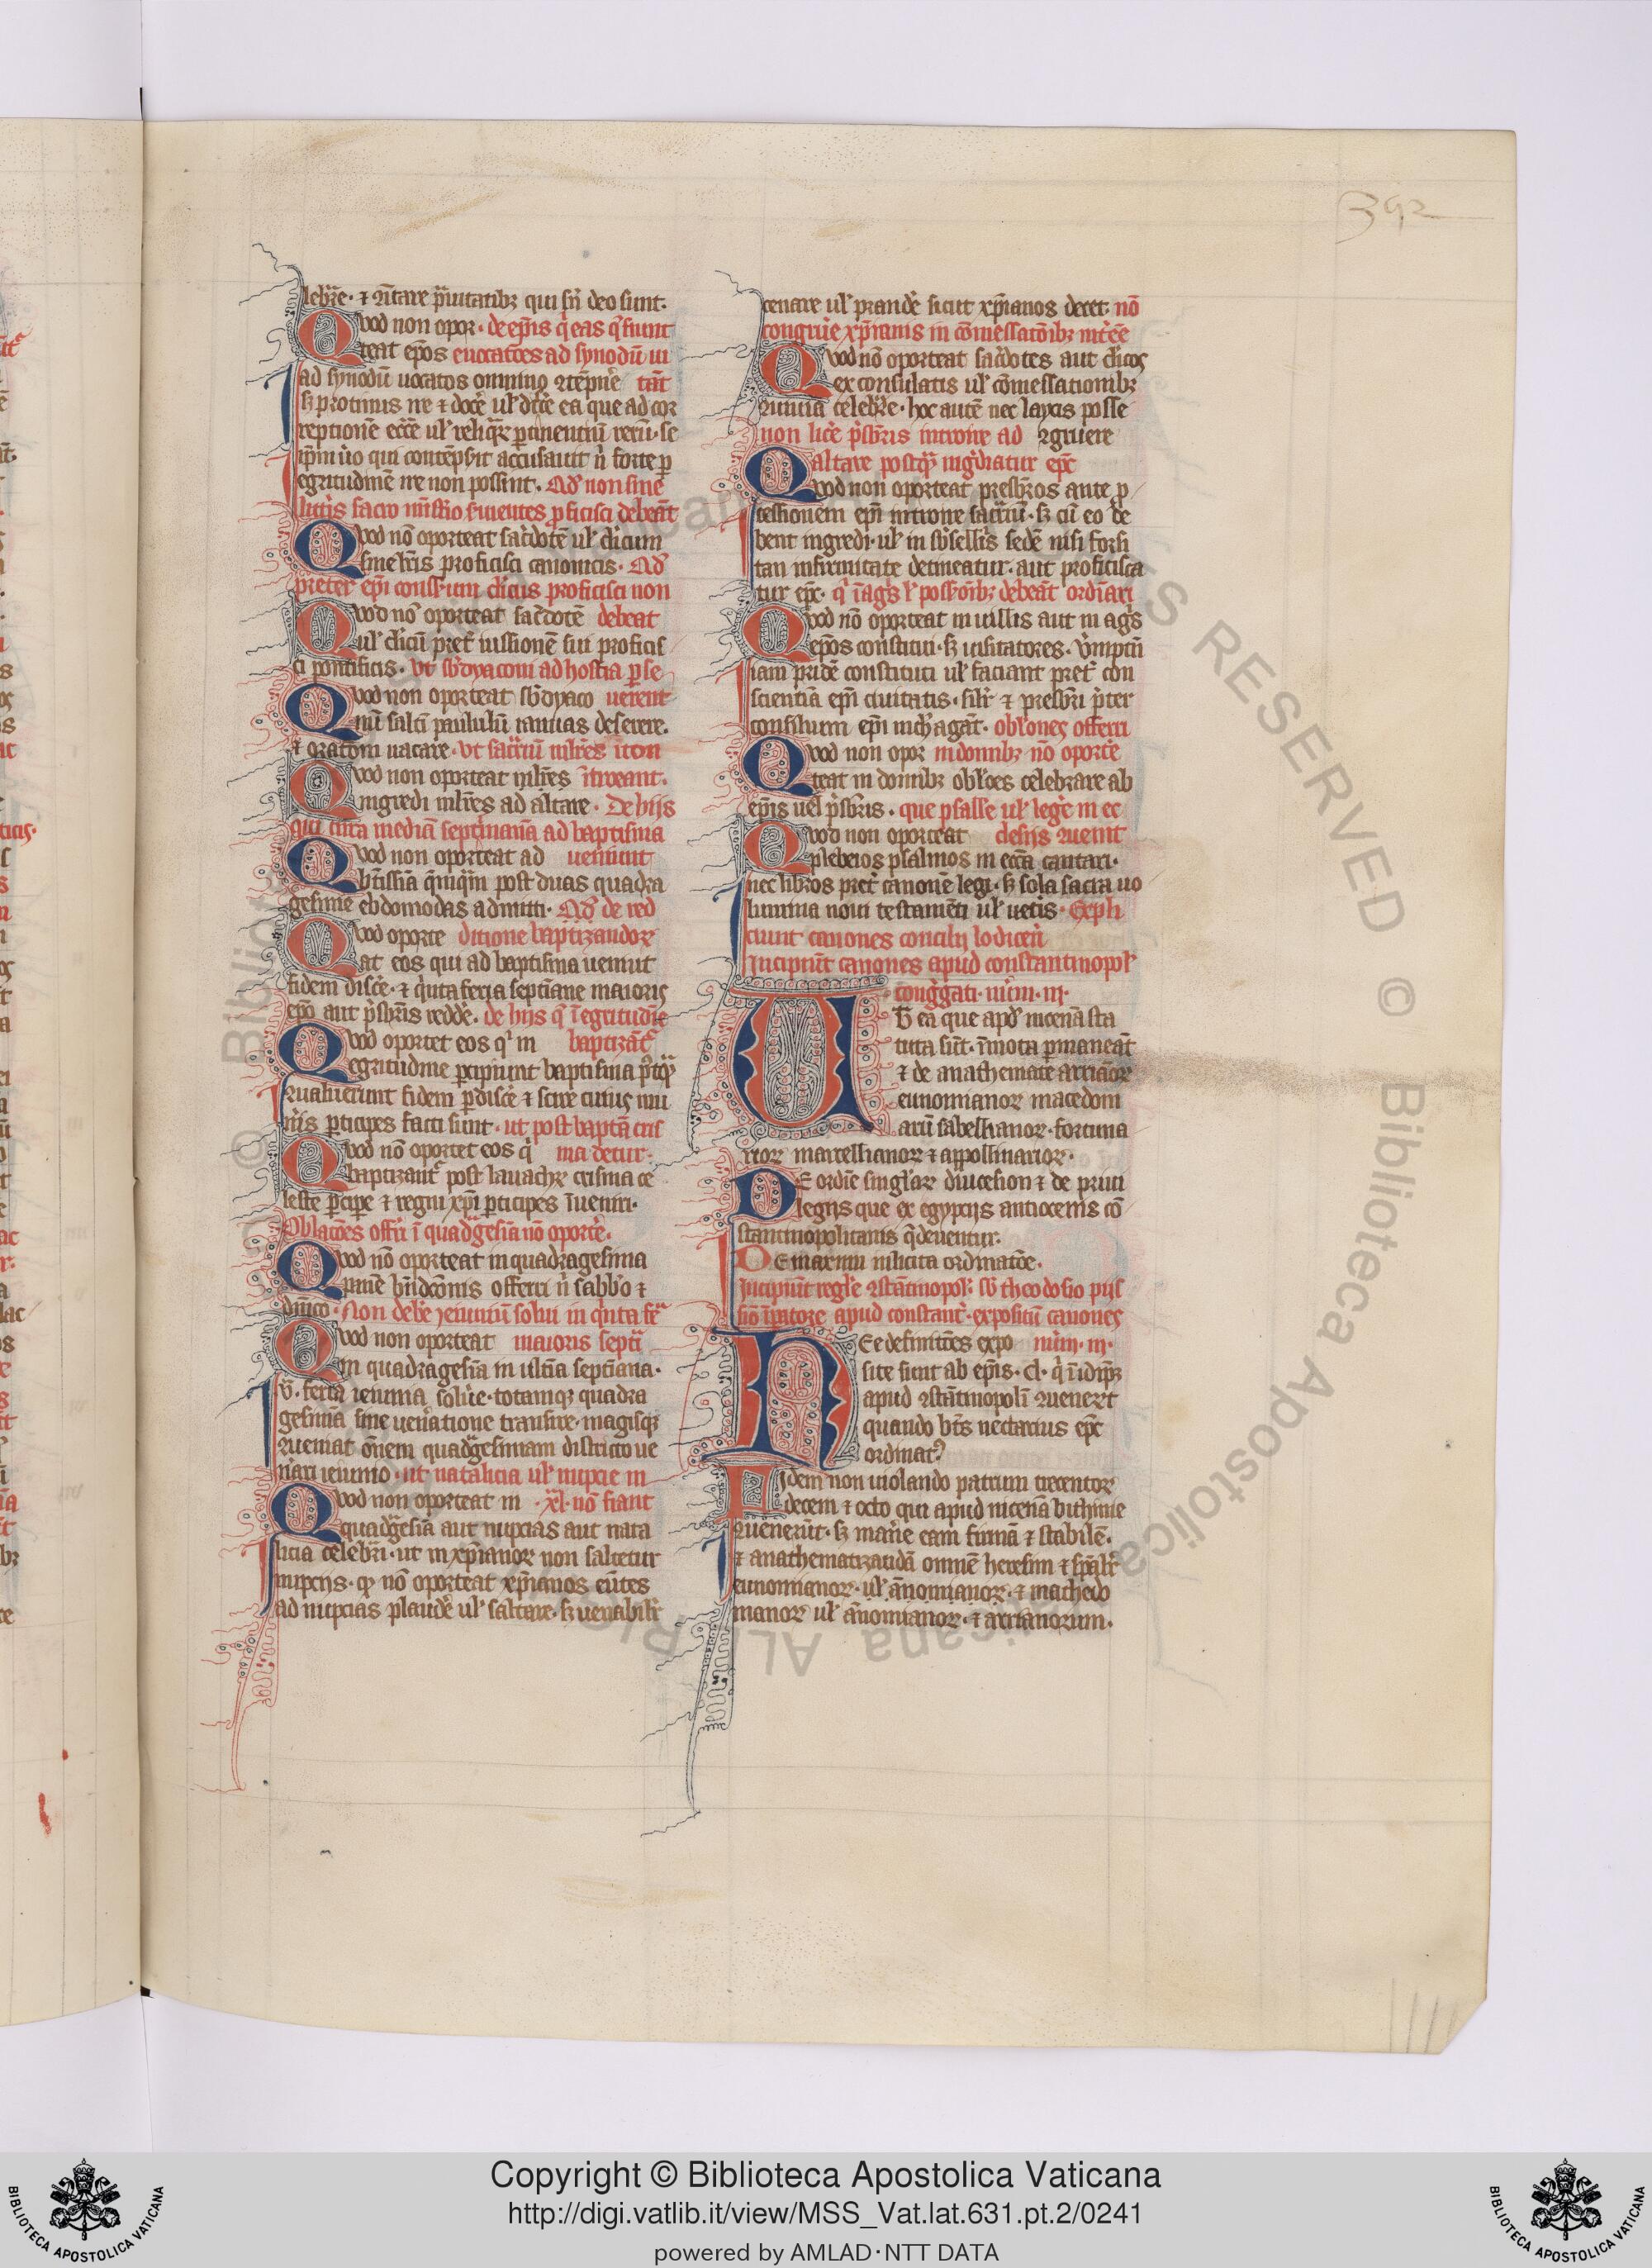 392
lebr̄e· ⁊ ꝯm̄tare p̄uitatibꝫ qui sn̄ deo sunt.
Qvod non opor· de ep̄is q̇ eas q̄ fiunt
teat ep̄os euocatōes ad synodū ui
ad synodū uocatos omnino ꝯtēpne᷑ tāt
sꝫ protinus ire ⁊ doce᷑ ul᷑ disce᷑ ea que ad cor
reptionē ecc̄e ul᷑ reliq̄ꝝ ꝑtinentiū rerū· se
ip̄m ūo qui contēpsit accusauit n̄ forte ꝑ
egritudinē ire non possint. Ad᷑ non sine
litt̄is sacro mīst̄io s᷑uientes ꝓficisci debeāt
Qvod nō oporteat sac̄dotē ul᷑ cl̄icum
sine lr̄is proficisci canonicis· Ad᷑
preter ep̄i consiliu cl̄icus proficisci non
Qvod nō oporteat sac̄dotē debeat
ul᷑ cl̄icū pret᷑ iussionē sui proficis
ci pontificis. Vt sb̄dyaconi ad hostia ꝑ se
Qvod non oporteat sb̄dyaco uerent
nū saltī paululū ianuas deserere.
⁊ oratōni uacare· Vt sacr̄iū mlr̄es n̄ con
Qvod non oporteat mlr̄es īt̄roeant.
ingredi mlr̄es ad altare· De hijs
qui citra mediā septīmanā ad baptisma
Qvod non oporteat ad ueniunt
bt̄issīā q̄miq̄m post duas quadra
gesime ebdomodas admitti. Ad᷑ de red
Qvod oporte ditione baptizandoꝝ
at eos qui ad baptisma ueniut
fidem disce᷑· ⁊ q̇nta feria septiane maioris
ep̄o aut p̄sb̄ris redde᷑. de hijs q̇ ī egritudīe
Qvod oportet eos q̇ in baptizāt᷑
egritudine ꝑcipiunt baptisma p᷑tq̄ꝫ
ꝯualuerunt fidem ꝑdisce᷑ ⁊ scire cuius mu
n̄is ꝑticipes facti sunt· ut post baptā cris
Qvod nō oportet eos q̇ ma detur·
baptizant᷑ post lauachꝝ crisma ce
leste ꝑcipe᷑ ⁊ regni xp̄i ꝑticipes īueniri·
Oblatōes offer̄i ī quadr̄gesīa nō oporte᷑.
Qvod nō oporteat in quadragesima
pane bn̄dc̄onis offerri n̄ sabb̄o ⁊
dn̄ico· Non debe᷑ jeiuniū solui in q̇nta fe᷑
Qvod non oporteat maioris septi᷑
in quadragesīa in ultīa septīana·
v᷑. feria ieiunia solue᷑· totamqꝫ quadra
gesimā sine uen̄atione transire· magisqꝫ
ꝯueniat ōnem quadr̄gesimam districto ue
n̄ari ieiunio· ut natalicia ul᷑ nupcie in
Qvod non oporteat in ·xl· nō fiant
quadr̄gesīa aut nupcias aut nata
licia celebr̄i· ut in xp̄ianoꝝ non saltetur
nupcijs· qꝫ nō oporteat xp̄ianos eūtes
ad nupcias plaude᷑ ul᷑ saltare· sꝫ uenabilit᷑
cenare ul᷑ prande᷑ sicut xp̄ianos decet. nō
congrue᷑ xp̄ianis in cōmessatōibꝫ int᷑ee᷑
Qvod nō oporteat sac̄dotes aut cl̄icos
ex consulatis ul᷑ cōmessationibꝫ
ꝯuiuia celebr̄e· hoc autē nec laycis posse
non lice᷑ p̄sb̄ris introire ad ꝯgruere
Qaltare postq̄ꝫ ing᷑diatur ep̄c
vod non oporteat presb̄ros ante p
cessionem ep̄i introire sacr̄iū· sꝫ cū eo de
bent ingredi· ul᷑ in sb̄sellis sede᷑ nisi forsi
tan infirmitate detineatur· aut proficisca
tur ep̄c· q̇ ī ag᷑s l᷑ poss᷑onibꝫ debeāt ordīari
Qvod nō oporteat in uillis aut in ag᷑s
ep̄os constitui· sꝫ uisitatores. V̄mptn̄
iam pride᷑ constituti ul᷑ faciant pret᷑ con
scientiā ep̄i ciuitatis· silr̄ ⁊ presb̄ri p̄ter
consilium ep̄i nich̄ agāt· obl᷑ones offerri
Qvod non opor in domibꝫ nō oporte᷑
teat in domibꝫ obl᷑oes celebrare ab
ep̄is uel p̄sb̄ris· que psalle ul᷑ lege᷑ in ec
Qvod non oporteat desijs ꝯuenit
plebeios psalmos in ecc̄a cantari·
nec libros pret᷑ canonē legi· sꝫ sola sacra uo
lumina noui testamēti ul᷑ uet᷑is· Expli
ciunt canones concilij lodicen̄
Incipiūt canones apud constantinopol᷑
cong᷑gati· num· iij·
Vt ea que apd᷑ nicenā sta
tuta sūt· īmota ꝑmaneāt
⁊ de anathemate arrianoꝝ
eunomianoꝝ macedoni
arū sabellianoꝝ· fortuna
troꝝ marcellianoꝝ ⁊ appollinarioꝝ·
De ordīe singl᷑ꝝ diucesion ⁊ de priui
legijs que ex egypcijs antiocenis cō
stantinopolitanis q̄deuentur.
De maximi inlicita ordinatōe.
Incipiūt regl᷑e ꝯstātinopol᷑· sb̄ theodosio piis
sīo īꝑatore apud constant᷑· expositū canones
Hee definitōes expo num· iij·
site sunt ab ep̄is· cl· q̇ ī idip̄ꝫ
apud ꝯstātinopolī ꝯuener̄t
quando bt̄s nectarius ep̄c
ordinat᷑
Fidem non uiolando patrum trecentoꝝ
decem ⁊ octo qui apud nicenā bithinie
ꝯuenerūt· sꝫ mane᷑ eam firmā ⁊ stabilē·
⁊ anathematizandā omnē heresim ⁊ sp̄alit᷑
eunomianoꝝ· ul᷑ ānomianoꝝ· ⁊ machedo
nianoꝝ ul᷑ ānomianoꝝ· ⁊ arrianorum.
Copyright © Biblioteca Apostolica Vaticana
http://digi.vatlib.it/view/MSS_Vat.lat.631.pt.2/0241
powered by AMLAD·NTT DATA
BIBLIOTECA APOSTOLICA VATICANA
BIBLIOTECA APOSTOLICA VATICANA